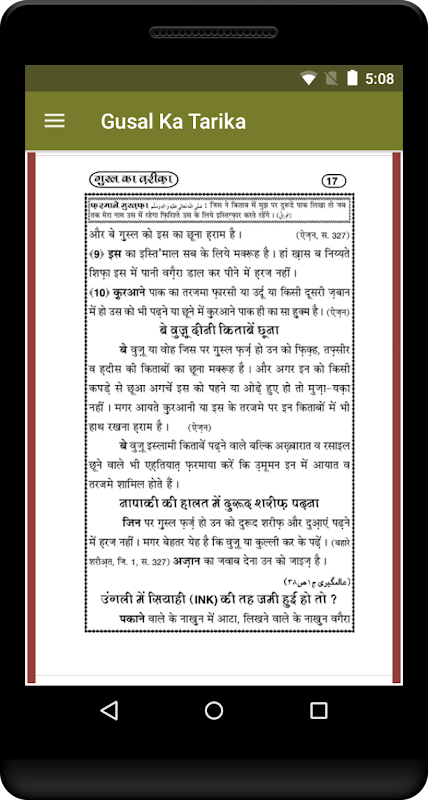 5:08
Gusal Ka Tarika
गुस्ल का तरीक़ा
17
फ़रमाने मुस्तफ़ा صلى الله تعالى عليه واله وسلم : जिस ने किताब में मुझ पर दुरूदे पाक लिखा तो जब
तक मेरा नाम उस में रहेगा फ़िरिश्ते उस के लिये इस्तिग़्फ़ार करते रहेंगे। (طبرانی)
और बे गुस्ल को इस का छूना हराम है। (ऐज़न, स. 327)
(9) इस का इस्ति'माल सब के लिये मक्रूह है। हां ख़ास ब निय्यते
शिफ़ा इस में पानी वग़ैरा डाल कर पीने में हरज नहीं।
(10) कुरआने पाक का तरजमा फ़ारसी या उर्दू या किसी दूसरी ज़बान
में हो उस को भी पढ़ने या छूने में कुरआने पाक ही का सा हुक्म है। (ऐज़न)
बे वुज़ू दीनी किताबें छूना
बे वुज़ू या वोह जिस पर गुस्ल फ़र्ज़ हो उन को फ़िक़्ह, तफ़्सीर
व हदीस की किताबों का छूना मक्रूह है। और अगर इन को किसी
कपड़े से छूआ अगर्चे इस को पहने या ओढ़े हुए हो तो मुज़ा-यक़ा
नहीं। मगर आयते कुरआनी या इस के तरजमे पर इन किताबों में भी
हाथ रखना हराम है। (ऐज़न)
बे वुज़ू इस्लामी किताबें पढ़ने वाले बल्कि अख़्बारात व रसाइल
छूने वाले भी एहतियात़ फ़रमाया करें कि उ़मूमन इन में आयात व
तरजमे शामिल होते हैं।
नापाकी की हालत में दुरूद शरीफ़ पढ़ना
जिन पर गुस्ल फ़र्ज़ हो उन को दुरूद शरीफ़ और दुआ़एं पढ़ने
में हरज नहीं। मगर बेहतर येह है कि वुज़ू या कुल्ली कर के पढ़ें। (बहारे
शरीअ़त, जि. 1, स. 327) अज़ान का जवाब देना उन को जाइज़ है।
(عالمگیری ج۱ ص۳۸)
उंगली में सियाही (INK) की तह जमी हुई हो तो ?
पकाने वाले के नाखुन में आटा, लिखने वाले के नाखुन वग़ैरा